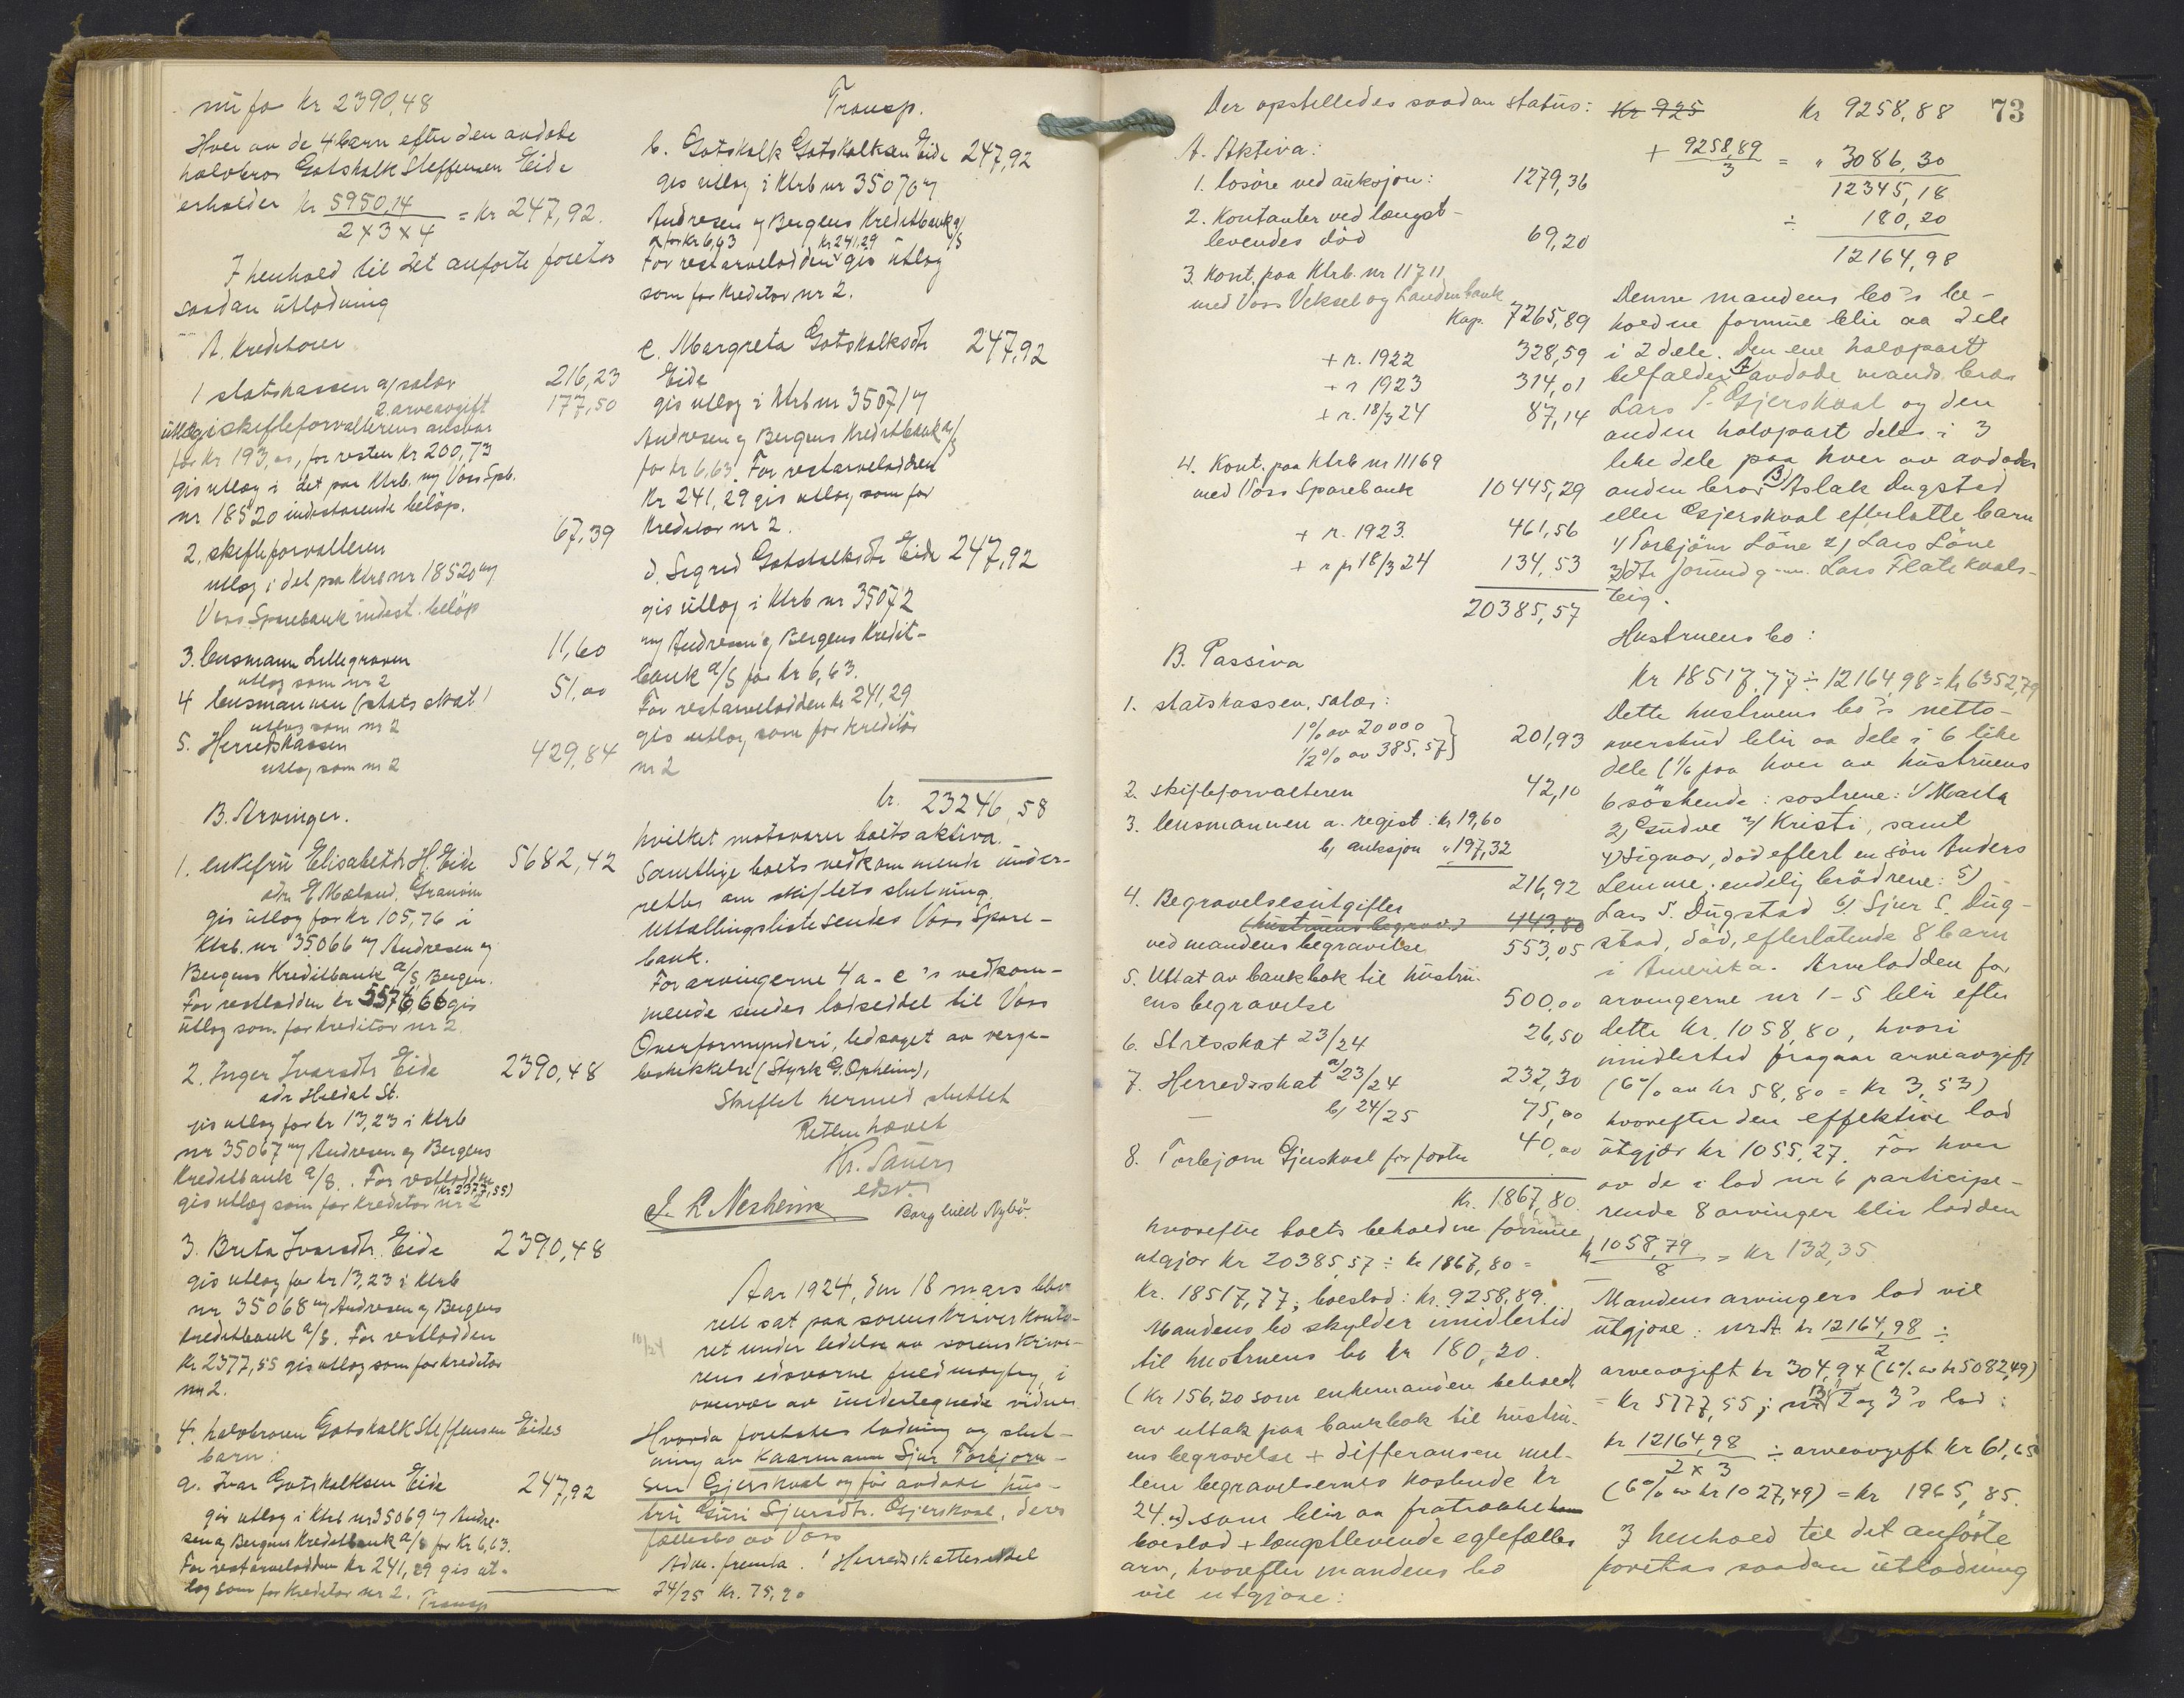 nu faa kr 2390,48
Hver av de 4 barn efter den avdøde
halvbror Gotskalk Steffensen Eide
erholder kr 5950,14 / 2x3x4 = kr 247,92.
I henhold til det anførte foretas
saadan utlodning
A. Kreditorer
1 statskassen a) salær 216,23
2. arveavgift 177,50
utlæg i skifteforvalterens ansvar
for kr 193,00, for resten kr 200,73
gis utlæg i det paa Ktrb. m/ Voss Spb.
nr 18520 indestaaende beløp.
2. skifteforvalteren 67,39
utlæg i det paa Ktrb nr 18520 m/
Voss Sparebank indest. beløp
3. lensmann Lillegraven 11,60
utlæg som nr 2
4 lensmannen (stats skat) 51,00
utlæg som nr 2
5. Herredskassen 429,84
utlæg som nr 2
B. Arvinger.
1. enkefru Elisabeth H. Eide 5682,42
adr. E Mæland, Granvin
gis utlæg for kr 105,76 i
Ktrb. nr 35066 m/ Andresen og
Bergens Kreditbank a/s, Bergen.
For restlodden kr 5576,66 gis
utlæg som for kreditor nr 2
2. Inger Ivarsdtr Eide 2390,48
adr Hildal St.
gis utlæg for kr 13,23 i Ktrb
nr 35067 m/ Andresen og Bergens
Kreditbank a/s. For restlodden
(kr 2377,55)
gis utlæg som for kreditor nr 2
3. Brita Ivarsdtr. Eide 2390,48
gis utlæg for kr 13,23 i Ktrb
nr 35068 m/ Andresen og Bergens
Kreditbank a/s. For restlodden
kr 2377,55 gis utlæg som for kreditor
nr 2.
4. halvbroren Gotskalk Steffensen Eides
barn:
a. Ivar Gotskalksen Eide 247,92
gis utlæg i Ktrb nr 35069 m/ Andre-
sen og Bergens Kreditbank a/s for kr 6,63.
For restarvelodden kr 241,29 gis ut-
læg som for kreditor nr 2.
Transp
Transp.
b. Gotskalk Gotskalksen Eide 247,92
gis utlæg i Ktrb nr 35070 m/
Andresen og Bergens Kreditbank a/s
for kr 6,63 kr 241,29
For restarvelodden gis utlæg
som for kreditor nr 2.
c. Margreta Gotskalksdtr 247,92
Eide
gis utlæg i Ktrb nr 35071 m/
Andresen og Bergens Kreditbank a/s
for kr 6,63. For restarvelodden
kr 241,29 gis utlæg som for
kreditor nr 2.
d. Sigrid Gotskalksdtr Eide 247,92
gis utlæg i Ktrb nr 35072
m/ Andresen og Bergens Kredit-
bank a/s for kr 6,63.
For restarvelodden kr 241,29
gis utlæg som for kreditor
nr 2
kr. 23246,58
hvilket motsvarer boets aktiva.
Samtlige boets vedkommende under-
rettes om skiftets slutning.
Uttallingsliste sendes Voss Spare-
bank.
For arvingerne 4 a-c's vedkom-
mende sendes lodseddel til Voss
Overformynderi, ledsaget av verge-
beskikkelse (Styrk G. Opheim),
Skiftet hermed sluttet
Retten hævet
Kr. Sauers
edsv
J. R Nesheim Borghild Nybø.
Aar 1924, den 18 mars blev
rett sat paa sorenskriverkonto-
10/24
ret under ledelse av sorenskrive-
rens edsvorne fuldmægtig, i
overvær av undertegnede vidner
Hvorda foretokes lodning og slut-
ning av Kaarmann Sjur Torbjørn-
sen Gjerskvol og før avdøde hus-
tru Guri Sjursdtr. Gjerskvol, deres
fællesbo av Voss
Adm. fremla. ! Herredsskatteseddel
24/25 kr. 75,20
73
Der opstilledes saadan status:
A. Aktiva:
1. løsøre ved auksjon: 1279,36
2. Kontanter ved længst-
levendes død 69,20
3. Kont. paa Ktrb. nr 11711
med Voss Veksel og Landm bank
Kap. 7265,89
+ r. 1922 328,59
+ r 1923 314,01
+ r. 18/3 24 87,14
4. Kont. paa Ktrb nr 11169
med Voss Sparebank 10445,29
+ r. 1923. 461,56
+ r pr 18/3 24 134,53
20385,57
B. Passiva
1. statskassen, salær:
1% av 20000
1/2% av 385,57 201,93
2. skifteforvalteren 42,10
3. lensmannen a. regist: kr 19,60
b, auksjon " 197,32
216,92
4. Begravelsesutgifter
(hustruens begrav.) 443,80
ved mandens begravelse 553,05
5. Uttat av bankbok til hustru-
ens begravelse 500,00
6. Statsskat 23/24 26,50
7. Herredsskat a) 23/24 232,30
— b, 24/25 75,00
8. Torbjørn Gjerskvol for foster 40,00
kr. 1867,80.
hvorefter boets beholdne formue
utgjør kr 20385,57 ÷ kr 1867,80 =
kr. 18517,77; boeslod: kr. 9258,89.
Mandens bo skylder imidlertid
til hustruens bo kr 180,20.
(kr 156,20 som enkemanden beholdt
av uttak paa bankbok til hustru-
ens begravelse + differansen mel-
lem begravelsernes kostende kr
24.00) som blir aa fratrække
boeslod + længstlevende egtefælles
arv, hvorefter mandens bo
vil utgjøre:
Kr 925 kr 9258,88
+ 9258,89 / 3 = " 3086,30
12345,18
÷ 180,20
12164,98
Denne mandens bo's be-
holdne formue blir aa dele
i 2 dele. Den ene halvpart
tilfalder A) avdøde mands bror
Lars T. Gjerskvol og den
anden halvpart deles i 3
like dele paa hver av avdødes
anden bror B) Aslak Dugstad
eller Gjerskvol efterlatte barn
1) Torbjørn Løne 2) Lars Løne
3) dtr Jorund g.m. Lars Flatekvals-
teig.
Hustruens bo:
kr 18517,77 ÷ 12164,98 = kr 6352,79
Dette hustruens bo's netto-
overskud blir aa dele i 6 like
dele (1/6 paa hver av hustruens
6 søskende: søstrene: 1) Marta
2) Gudve 3) Kristi, samt
4) Signar, død efterl en søn Anders
Lemme; endelig brødrene: 5)
Lars S. Dugstad 6) Sjur S. Dug-
stad, død, efterlatende 8 barn
i Amerika. Arvelodden for
arvingerne nr 1-5 blir efter
dette kr. 1058,80, hvori
imidlertid fragaar arveavgift
(6% av kr 58,80 = kr 3,53)
hvorefter den effektive lod
utgjør kr 1055,27. For hver
av de i lod nr 6 participe-
rende 8 arvinger blir lodden
kr 1058,79 / 8 = kr 132,35
Mandens arvingers lod vil
utgjøre: nr A kr 12164,98 / 2 ÷
arveavgift kr 304,94 (6% av kr 5082,49)
= kr 5777,55; B 1, 2 og 3's lod:
kr 12164,98 / 2 x 3 ÷ arveavgift kr 61,65
(6% av kr 1027,49) = kr 1965,85.
I henhold til det anførte
foretas saadan utlodning